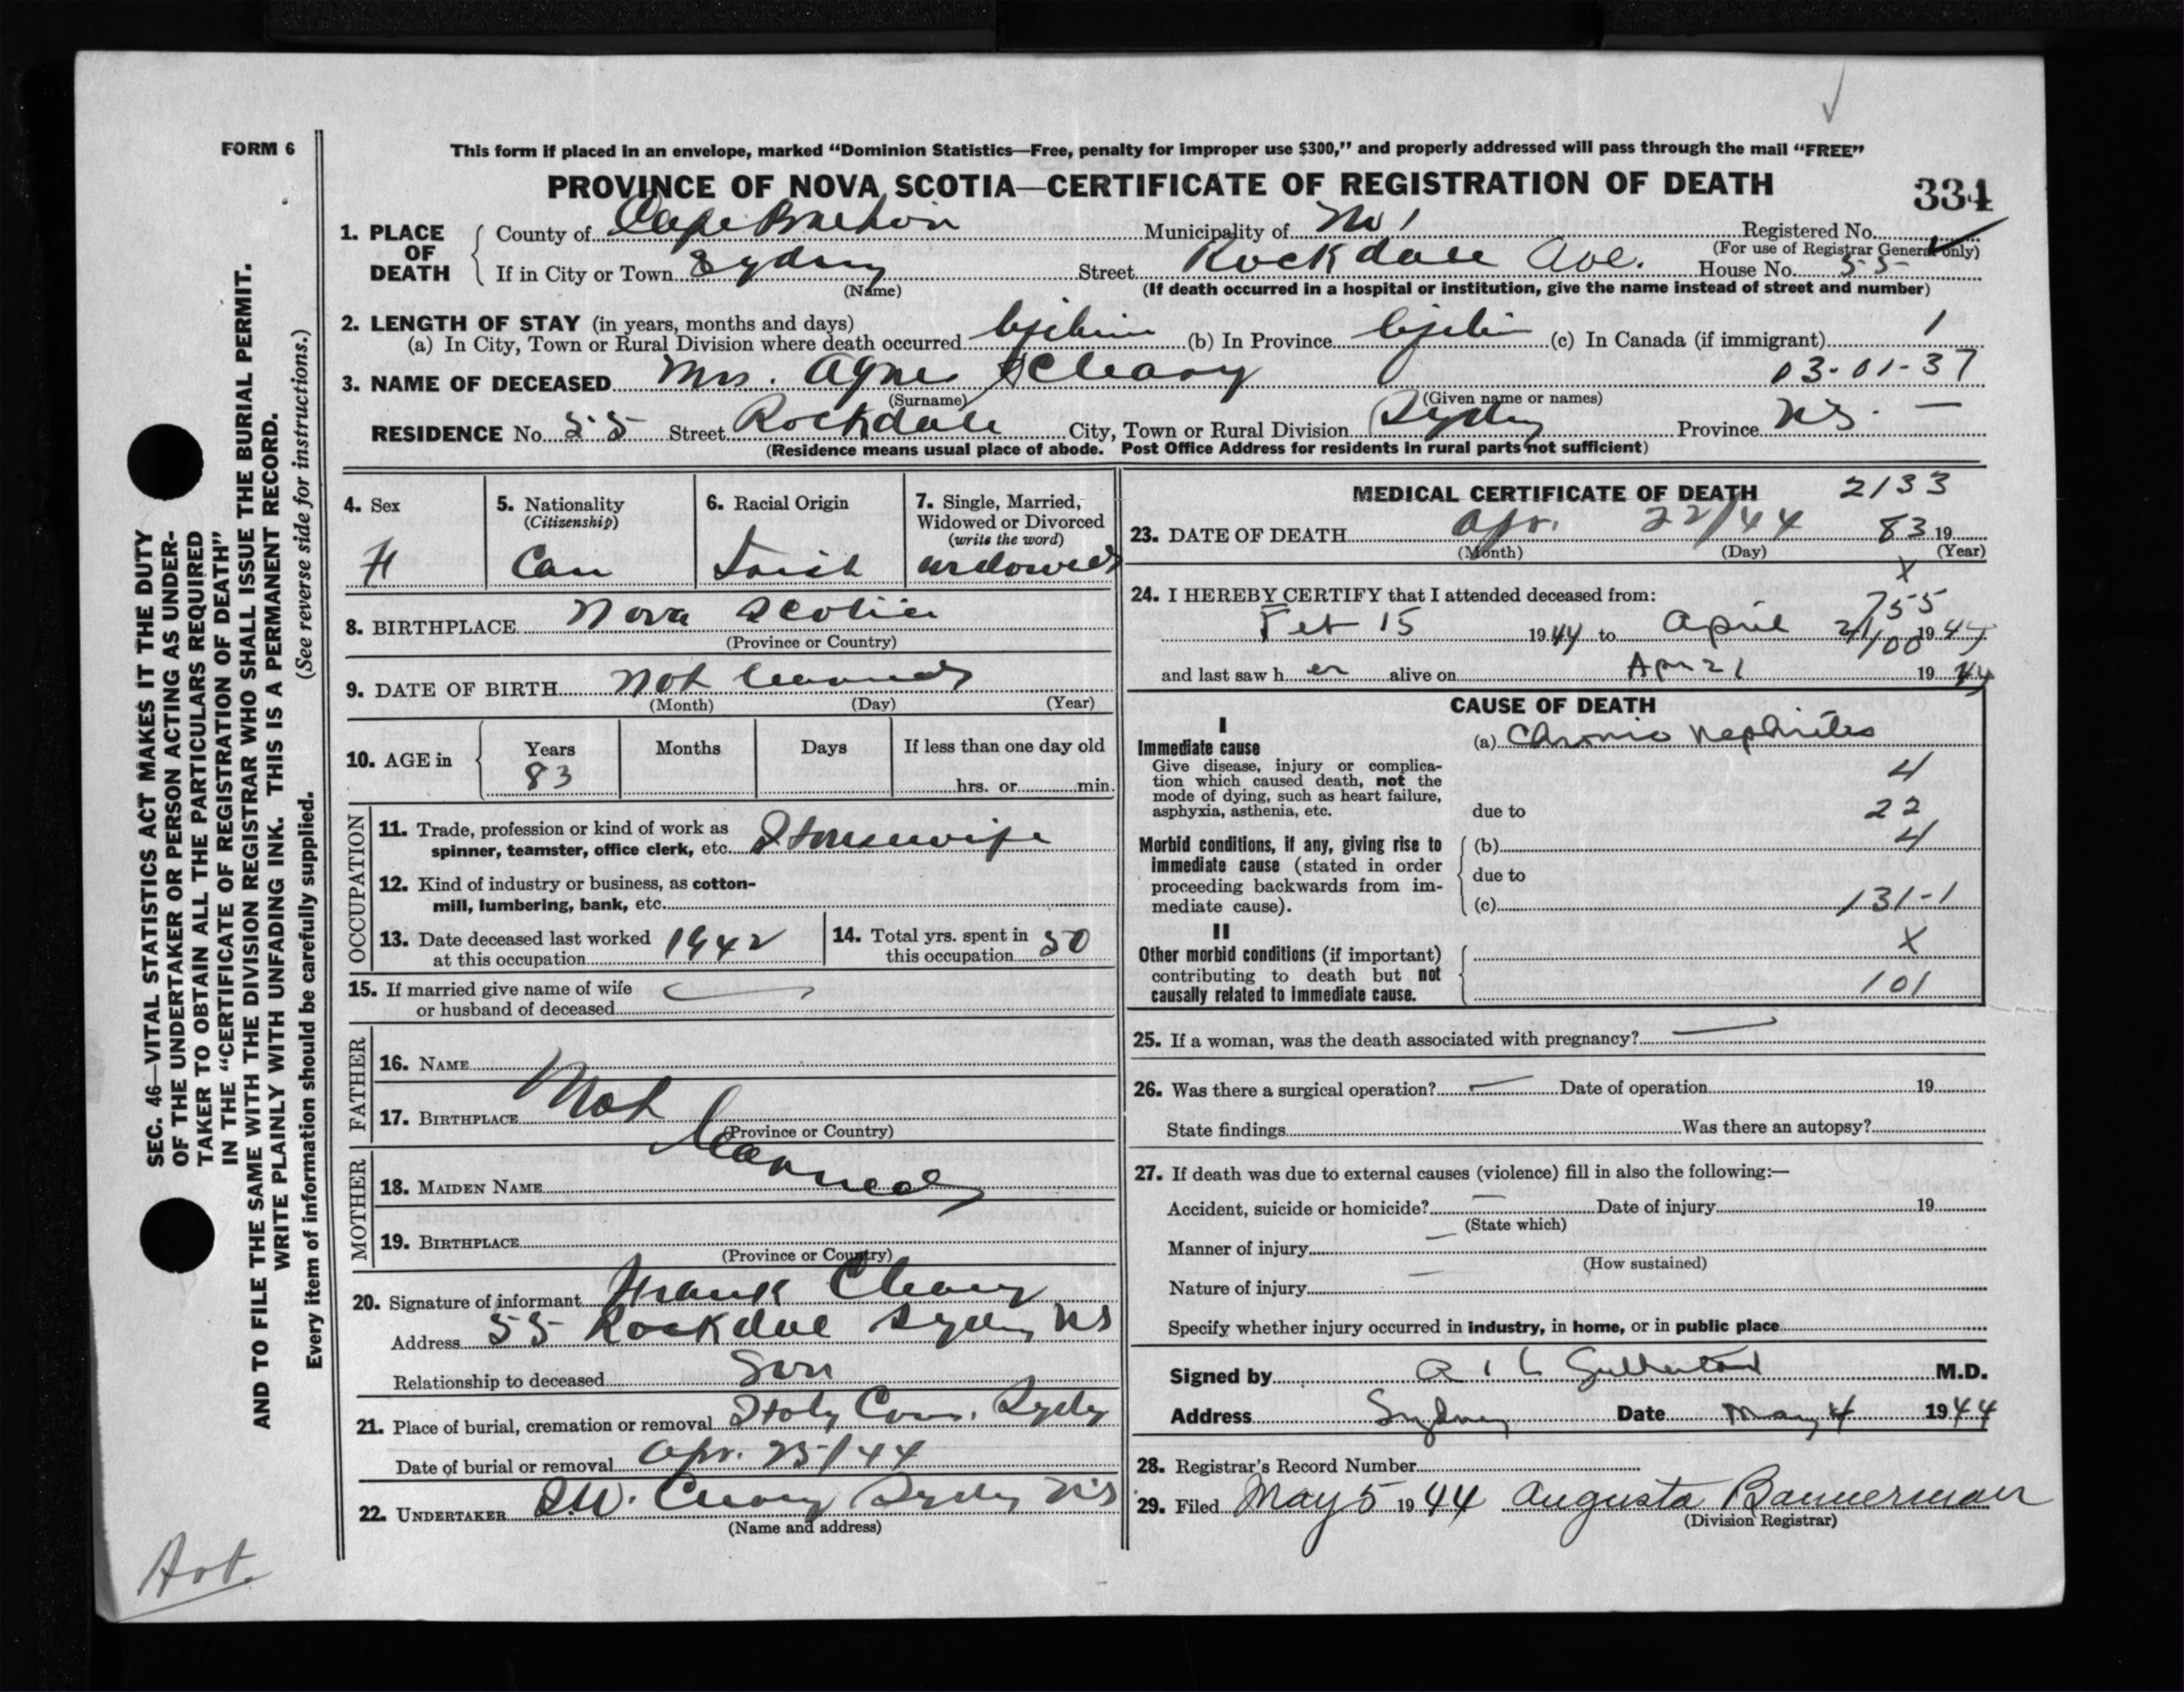 FORM 6
This form if placed in an envelope, marked “Dominion Statistics—Free, penalty for improper use $300,” and properly addressed will pass through the mail “FREE”
PROVINCE OF NOVA SCOTIA—CERTIFICATE OF REGISTRATION OF DEATH
334
1. PLACE OF DEATH
County of Cape Breton Municipality of Registered No.
(For use of Registrar General only)
If in City or Town Sydney Street Rockdale Ave. House No. 55
(Name)
(If death occurred in a hospital or institution, give the name instead of street and number)
2. LENGTH OF STAY (in years, months and days)
(a) In City, Town or Rural Division where death occurred (b) In Province (c) In Canada (if immigrant) 1
3. NAME OF DECEASED Mrs. Agnes Cleary 03-01-37
(Surname) (Given name or names)
RESIDENCE No. 55 Street Rockdale City, Town or Rural Division Sydney Province NS. —
(Residence means usual place of abode. Post Office Address for residents in rural parts not sufficient)
4. Sex
F
5. Nationality
(Citizenship)
Can
6. Racial Origin
Irish
7. Single, Married,
Widowed or Divorced
(write the word)
widowed
8. BIRTHPLACE Nova Scotia
(Province or Country)
9. DATE OF BIRTH Not
(Month) (Day) (Year)
10. AGE in
Years Months Days If less than one day old
83
hrs. or min.
OCCUPATION
11. Trade, profession or kind of work as
spinner, teamster, office clerk, etc. Housewife
12. Kind of industry or business, as cotton-
mill, lumbering, bank, etc.
13. Date deceased last worked
at this occupation 1942
14. Total yrs. spent in
this occupation 50
15. If married give name of wife
or husband of deceased —
FATHER
16. NAME
17. BIRTHPLACE Not
(Province or Country)
MOTHER
18. MAIDEN NAME
19. BIRTHPLACE
(Province or Country)
20. Signature of informant Frank Cleary
Address 55 Rockdale Sydney NS
Relationship to deceased Son
21. Place of burial, cremation or removal Holy Cross. Sydney
Date of burial or removal Apr. 25/44
22. UNDERTAKER Sydney NS
(Name and address)
MEDICAL CERTIFICATE OF DEATH 2133
23. DATE OF DEATH Apr. 22/44 83 19
(Month) (Day) (Year)
X
24. I HEREBY CERTIFY that I attended deceased from:
755
Feb 15 1944 to April 21 1944
100
and last saw her alive on Apr 21 1944
CAUSE OF DEATH
I
Immediate cause
Give disease, injury or complica-
tion which caused death, not the
mode of dying, such as heart failure,
asphyxia, asthenia, etc.
(a) Chronic Nephritis
4
due to 22
Morbid conditions, if any, giving rise to
immediate cause (stated in order
proceeding backwards from im-
mediate cause).
(b) 4
due to
(c) 131-1
II
Other morbid conditions (if important)
contributing to death but not
causally related to immediate cause.
X
101
25. If a woman, was the death associated with pregnancy? —
26. Was there a surgical operation? — Date of operation 19
State findings Was there an autopsy?
27. If death was due to external causes (violence) fill in also the following:—
Accident, suicide or homicide? — Date of injury 19
(State which)
Manner of injury —
(How sustained)
Nature of injury —
Specify whether injury occurred in industry, in home, or in public place
Signed by M.D.
Address Sydney Date May 4 1944
28. Registrar’s Record Number
29. Filed May 5 1944 Augusta Bannerman
(Division Registrar)
SEC. 46—VITAL STATISTICS ACT MAKES IT THE DUTY
OF THE UNDERTAKER OR PERSON ACTING AS UNDER-
TAKER TO OBTAIN ALL THE PARTICULARS REQUIRED
IN THE “CERTIFICATE OF REGISTRATION OF DEATH”
AND TO FILE THE SAME WITH THE DIVISION REGISTRAR WHO SHALL ISSUE THE BURIAL PERMIT.
WRITE PLAINLY WITH UNFADING INK. THIS IS A PERMANENT RECORD.
Every item of information should be carefully supplied. (See reverse side for instructions.)